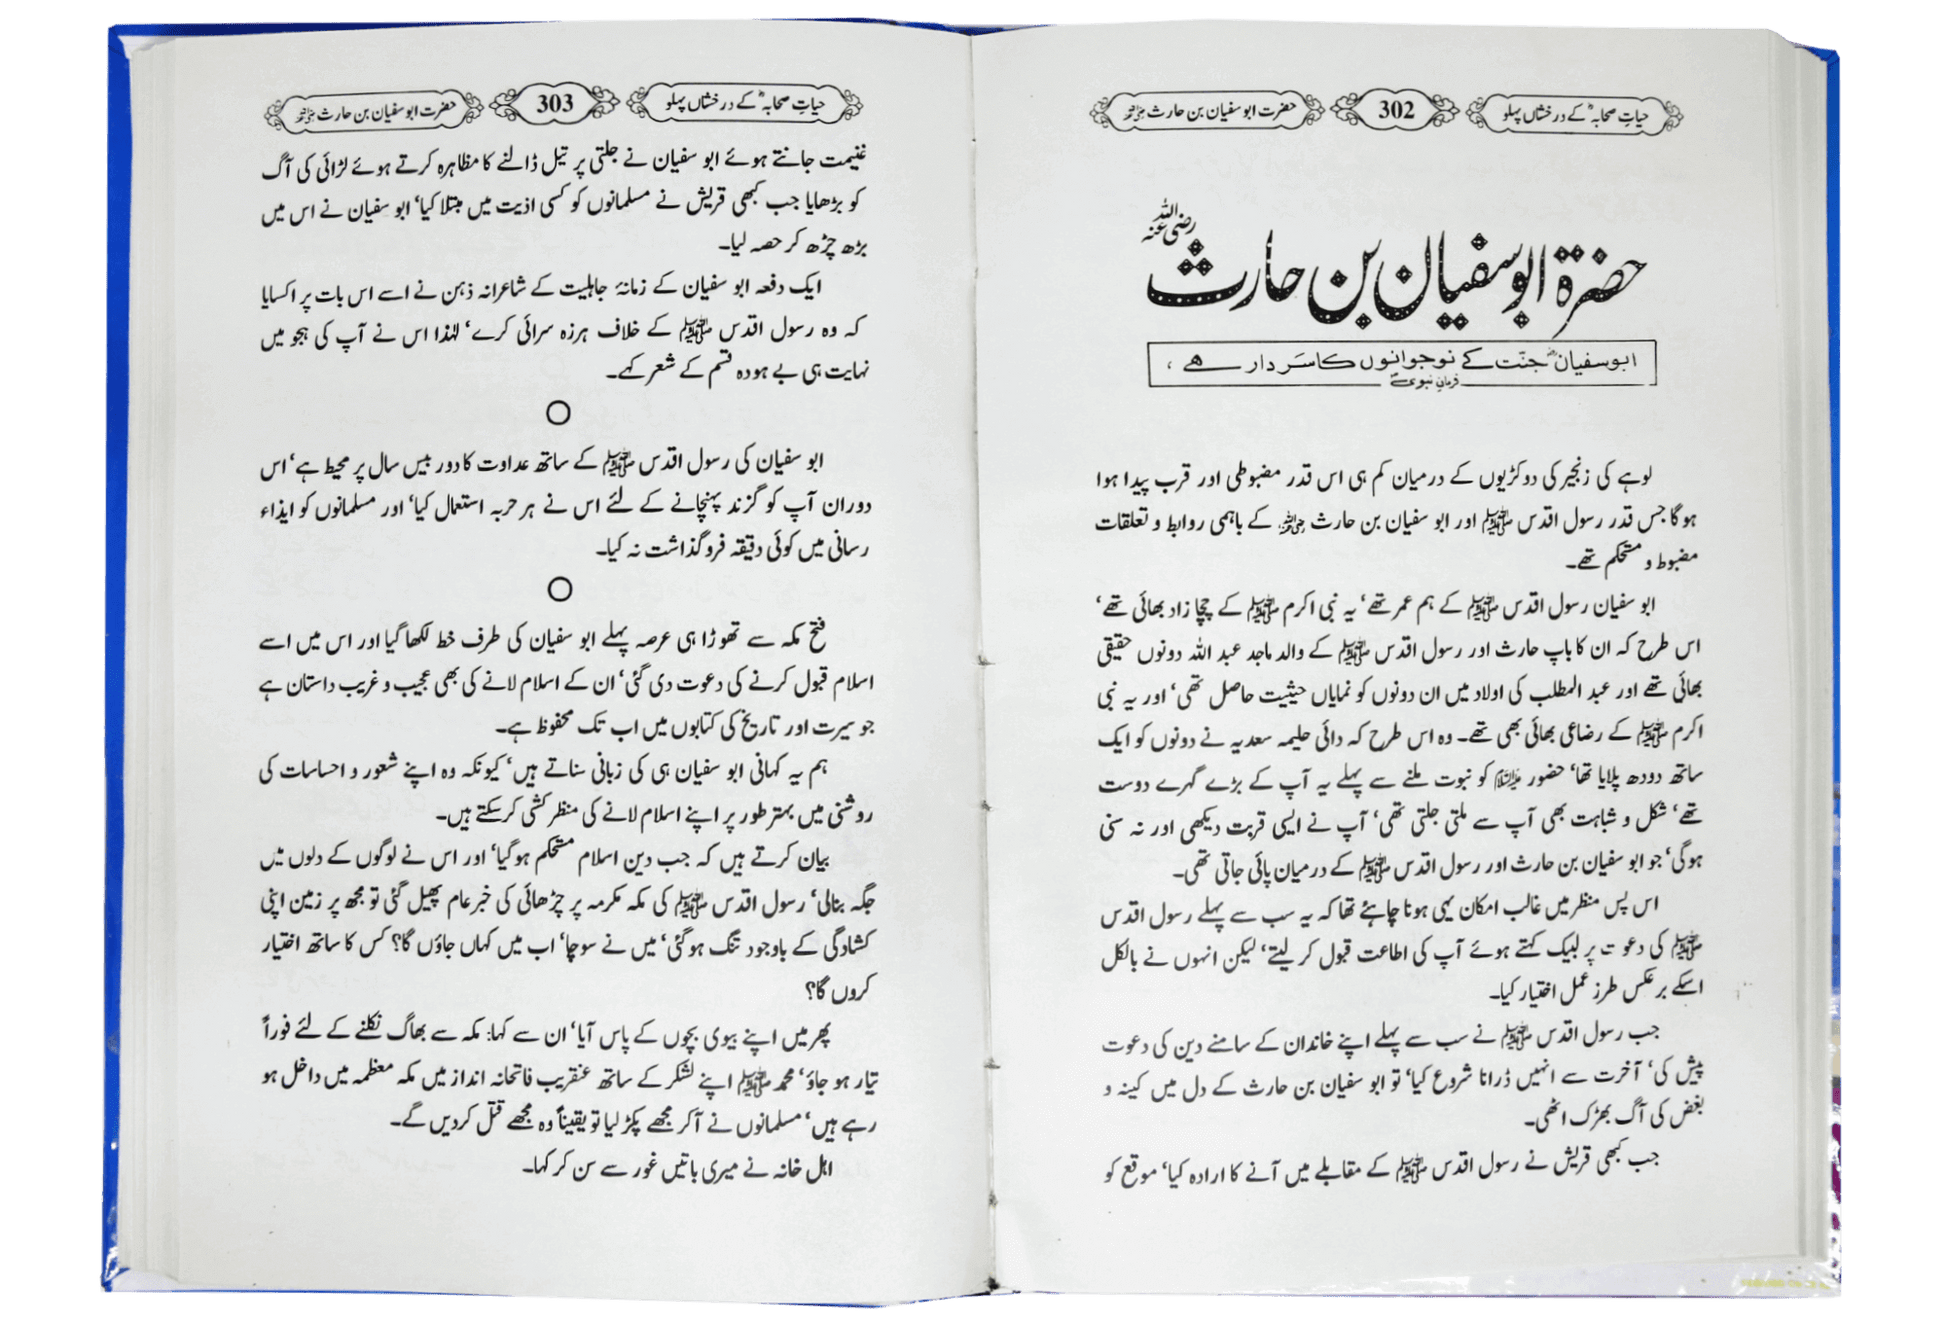 حیاتِ صحابہؓ کے درخشاں پہلو
302
حضرت ابو سفیان بن حارث رضی اللہ عنہ
حضرۃ ابو سفیان بن حارث رضی اللہ عنہ
ابو سفیانؓ جنت کے نوجوانوں کا سردار ہے،
فرمانِ نبویؐ
لوہے کی زنجیر کی دو کڑیوں کے درمیان کم ہی اس قدر مضبوطی اور قرب پیدا ہوا
ہو گا جس قدر رسول اقدس ﷺ اور ابو سفیان بن حارث رضی اللہ عنہ کے باہمی روابط و تعلقات
مضبوط و مستحکم تھے۔
ابو سفیان رسول اقدس ﷺ کے ہم عمر تھے‘ یہ نبی اکرم ﷺ کے چچا زاد بھائی تھے‘
اس طرح کہ ان کا باپ حارث اور رسول اقدس ﷺ کے والد ماجد عبد اللہ دونوں حقیقی
بھائی تھے اور عبد المطلب کی اولاد میں ان دونوں کو نمایاں حیثیت حاصل تھی‘ اور یہ نبی
اکرم ﷺ کے رضاعی بھائی بھی تھے۔ وہ اس طرح کہ دائی حلیمہ سعدیہ نے دونوں کو ایک
ساتھ دودھ پلایا تھا‘ حضور علیہ السلام کو نبوت ملنے سے پہلے یہ آپ کے بڑے گہرے دوست
تھے‘ شکل و شباہت بھی آپ سے ملتی جلتی تھی‘ آپ نے ایسی قربت دیکھی اور نہ سنی
ہوگی‘ جو ابو سفیان بن حارث اور رسول اقدس ﷺ کے درمیان پائی جاتی تھی۔
اس پس منظر میں غالب امکان یہی ہونا چاہئے تھا کہ یہ سب سے پہلے رسول اقدس
ﷺ کی دعوت پر لبیک کہتے ہوئے آپ کی اطاعت قبول کر لیتے‘ لیکن انہوں نے بالکل
اسکے برعکس طرز عمل اختیار کیا۔
جب رسول اقدس ﷺ نے سب سے پہلے اپنے خاندان کے سامنے دین کی دعوت
پیش کی‘ آخرت سے انہیں ڈرانا شروع کیا‘ تو ابو سفیان بن حارث کے دل میں کینہ و
بغض کی آگ بھڑک اٹھی۔
جب کبھی قریش نے رسول اقدس ﷺ کے مقابلے میں آنے کا ارادہ کیا‘ موقع کو
حیاتِ صحابہؓ کے درخشاں پہلو
303
حضرت ابو سفیان بن حارث رضی اللہ عنہ
غنیمت جانتے ہوئے ابو سفیان نے جلتی پر تیل ڈالنے کا مظاہرہ کرتے ہوئے لڑائی کی آگ
کو بڑھایا جب کبھی قریش نے مسلمانوں کو کسی اذیت میں مبتلا کیا‘ ابو سفیان نے اس میں
بڑھ چڑھ کر حصہ لیا۔
ایک دفعہ ابو سفیان کے زمانۂ جاہلیت کے شاعرانہ ذہن نے اسے اس بات پر اکسایا
کہ وہ رسول اقدس ﷺ کے خلاف ہرزہ سرائی کرے‘ لہٰذا اس نے آپ کی ہجو میں
نہایت ہی بے ہودہ قسم کے شعر کہے۔
ابو سفیان کی رسول اقدس ﷺ کے ساتھ عداوت کا دور بیس سال پر محیط ہے‘ اس
دوران آپ کو گزند پہنچانے کے لئے اس نے ہر حربہ استعمال کیا‘ اور مسلمانوں کو ایذاء
رسانی میں کوئی دقیقہ فروگذاشت نہ کیا۔
فتح مکہ سے تھوڑا ہی عرصہ پہلے ابو سفیان کی طرف خط لکھا گیا اور اس میں اسے
اسلام قبول کرنے کی دعوت دی گئی‘ ان کے اسلام لانے کی بھی عجیب و غریب داستان ہے
جو سیرت اور تاریخ کی کتابوں میں اب تک محفوظ ہے۔
ہم یہ کہانی ابو سفیان ہی کی زبانی سناتے ہیں‘ کیونکہ وہ اپنے شعور و احساسات کی
روشنی میں بہتر طور پر اپنے اسلام لانے کی منظر کشی کر سکتے ہیں۔
بیان کرتے ہیں کہ جب دین اسلام مستحکم ہو گیا‘ اور اس نے لوگوں کے دلوں میں
جگہ بنالی‘ رسول اقدس ﷺ کی مکہ مکرمہ پر چڑھائی کی خبر عام پھیل گئی تو مجھ پر زمین اپنی
کشادگی کے باوجود تنگ ہو گئی‘ میں نے سوچا‘ اب میں کہاں جاؤں گا؟ کس کا ساتھ اختیار
کروں گا؟
پھر میں اپنے بیوی بچوں کے پاس آیا‘ ان سے کہا: مکہ سے بھاگ نکلنے کے لئے فوراً
تیار ہو جاؤ‘ محمد ﷺ اپنے لشکر کے ساتھ عنقریب فاتحانہ انداز میں مکہ معظمہ میں داخل ہو
رہے ہیں‘ مسلمانوں نے آکر مجھے پکڑ لیا تو یقیناً وہ مجھے قتل کر دیں گے۔
اہل خانہ نے میری باتیں غور سے سن کر کہا۔